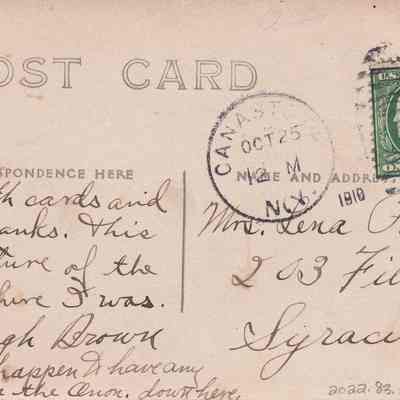 OST CARD
CANAST
OCT 25
12 M
N.Y.
1910
U.S.
SPONDENCE HERE
NAME AND ADDRES
th cards and
anks. This
ture of the
here I was.
gh Brown
happen to have any
the Onon. down here.
Mrs. Lena
203 Fi
Syracu
2022.83.